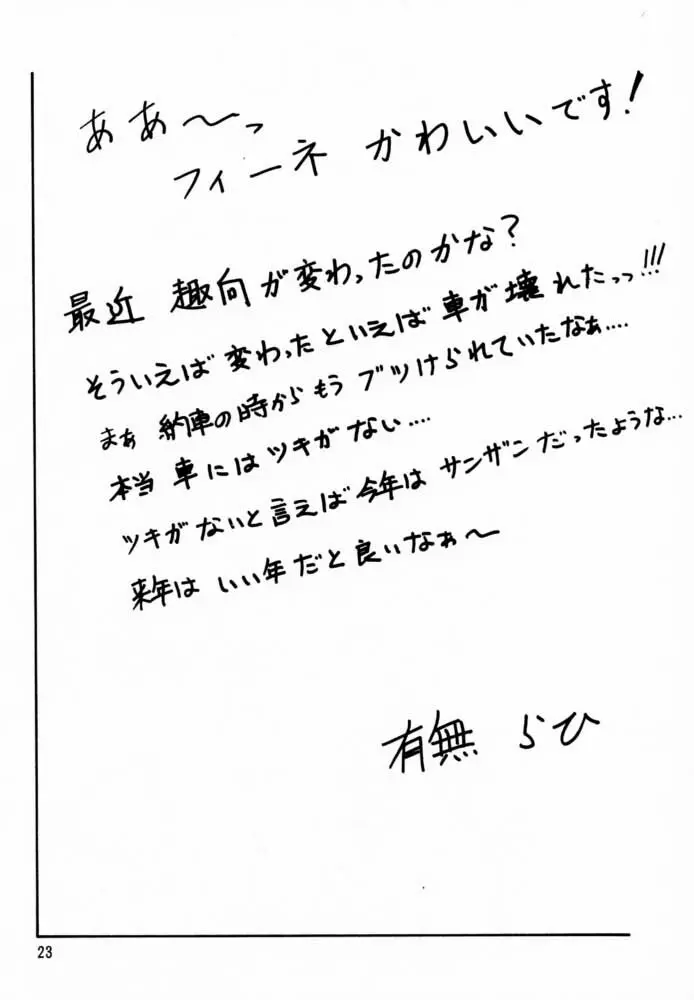 ああ〜っ
フィーネ かわいいです!
最近 趣向が変わったのかな?
そういえば 変わったといえば 車が 壊れたっっ!!!
まぁ 納車の時から もう ブツけられていたなぁ....
本当 車には ツキがない....
ツキがないと 言えば 今年は サンザンだったような...
来年は いい年だと 良いなぁ〜
有無 らひ
23